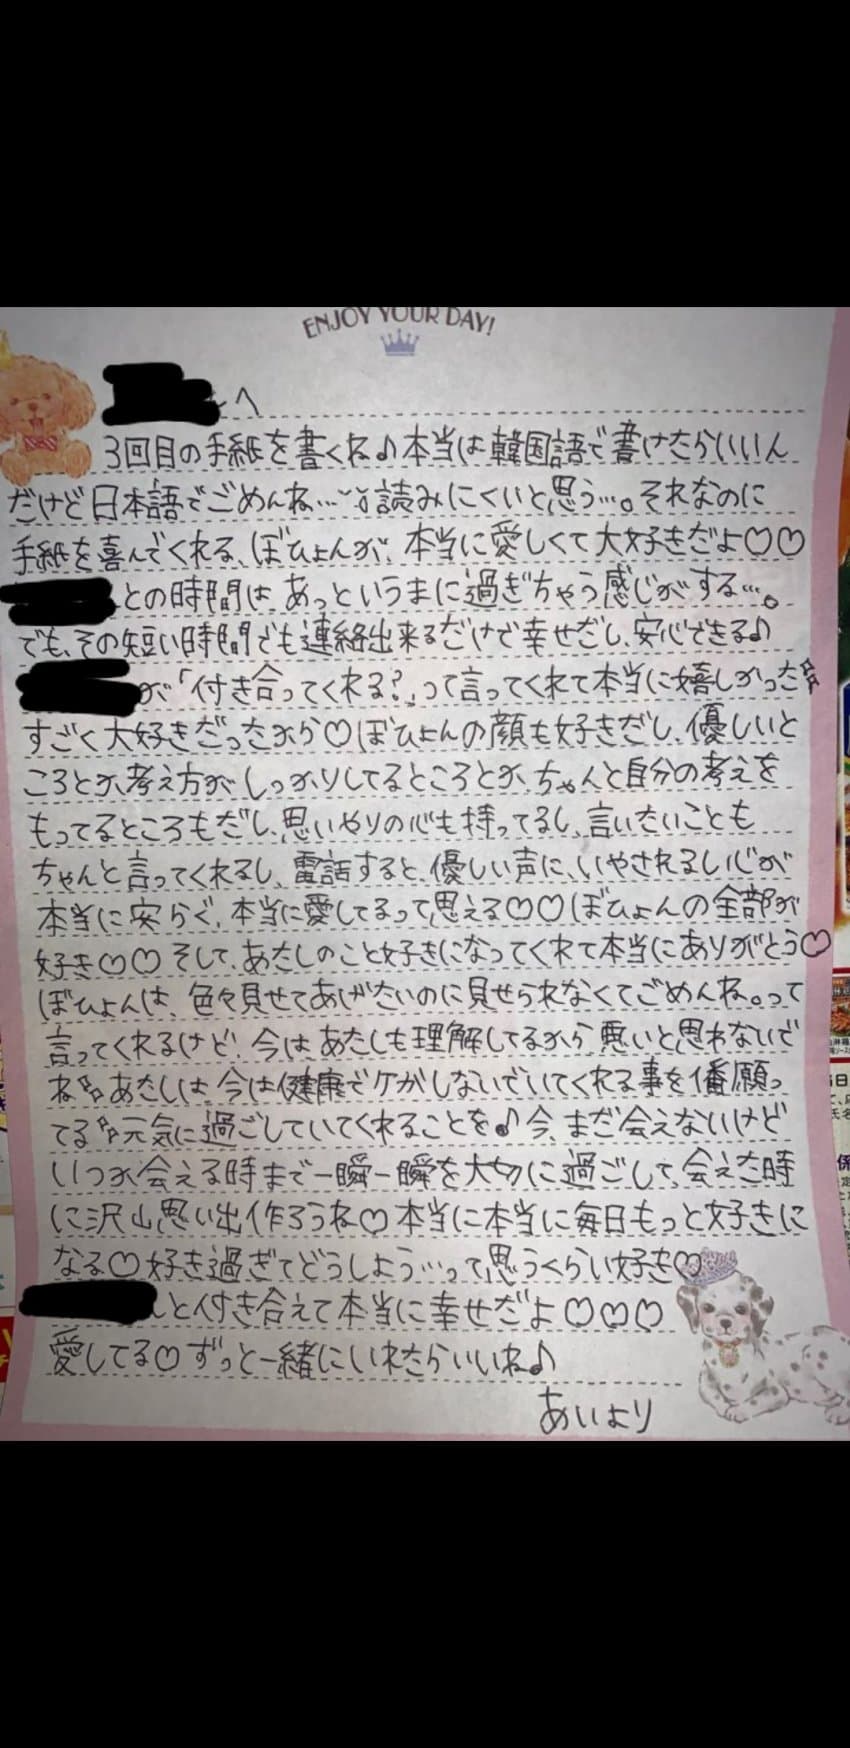 ENJOY YOUR DAY!
へ
3回目の手紙を書くね♪本当は韓国語で書けたらいいん
だけど日本語でごめんね…読みにくいと思う…。それなのに
手紙を喜んでくれる、ぼひょんが、本当に愛しくて大好きだよ♡♡
との時間は、あっというまに過ぎちゃう感じがする…。
でも、その短い時間でも連絡出来るだけで幸せだし、安心できる♪
が「付き合ってくれる?」って言ってくれて本当に嬉しかった
すごく大好きだったから♡ぼひょんの顔も好きだし、優しいと
ころとか、考え方がしっかりしてるところとか、ちゃんと自分の考えを
もってるところもだし、思いやりの心も持ってるし、言いたいことも
ちゃんと言ってくれるし、電話すると、優しい声に、いやされるし心が
本当に安らぐ、本当に愛してるって思える♡♡ぼひょんの全部が
好き♡♡そして、あたしのこと好きになってくれて本当にありがとう♡
ぼひょんは、色々見せてあげたいのに見せられなくてごめんね。って
言ってくれるけど、今はあたしも理解してるから、悪いと思わないで
ねあたしは、今は健康でケガしないでいてくれる事を1番願っ
てる元気に過ごしていてくれることを♪今、まだ会えないけど
いつか会える時まで一瞬一瞬を大切に過ごして、会えた時
に沢山思い出作ろうね♡本当に本当に毎日もっと好きに
なる♡好き過ぎてどうしよう…って思うくらい好き♡
と付き合えて本当に幸せだよ♡♡♡
愛してる♡ずっと一緒にいれたらいいね♪
あいより